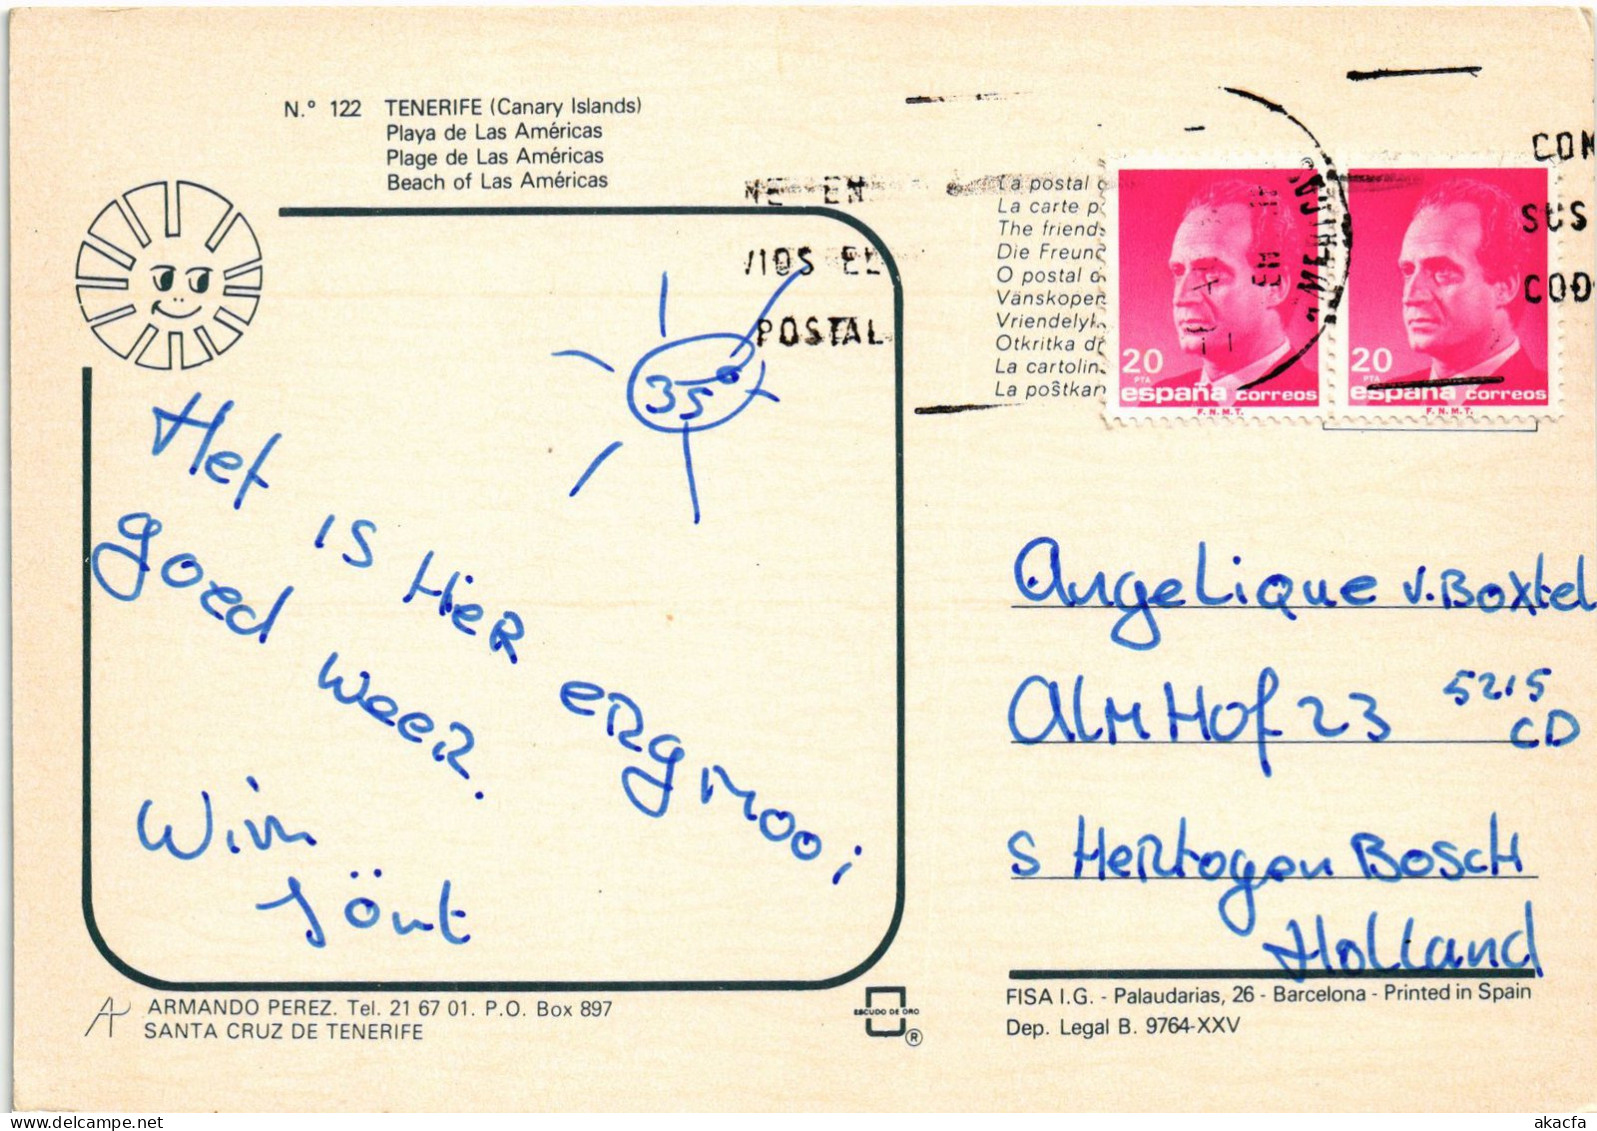 N.º 122 TENERIFE (Canary Islands)
Playa de Las Américas
Plage de Las Américas
Beach of Las Américas
NE EN
VIOS EL
POSTAL
La postal
La carte p
The friends
Die Freund
O postal
Vänskoper
Vriendelyk
Otkritka dr
La cartolin
La poŝtkar
20
PTA
españa correos
F.N.M.T.
20
PTA
españa correos
F.N.M.T.
COM
SUS
COD
35°
Het is Hier ergmooi
goed weer.
Wim
Jönt
Angelique v. Boxtel
Almhof 23 5215
CD
s Hertogen Bosch
Holland
ARMANDO PEREZ. Tel. 21 67 01. P.O. Box 897
SANTA CRUZ DE TENERIFE
ESCUDO DE ORO
®
FISA I.G. - Palaudarias, 26 - Barcelona - Printed in Spain
Dep. Legal B. 9764-XXV
akacfa